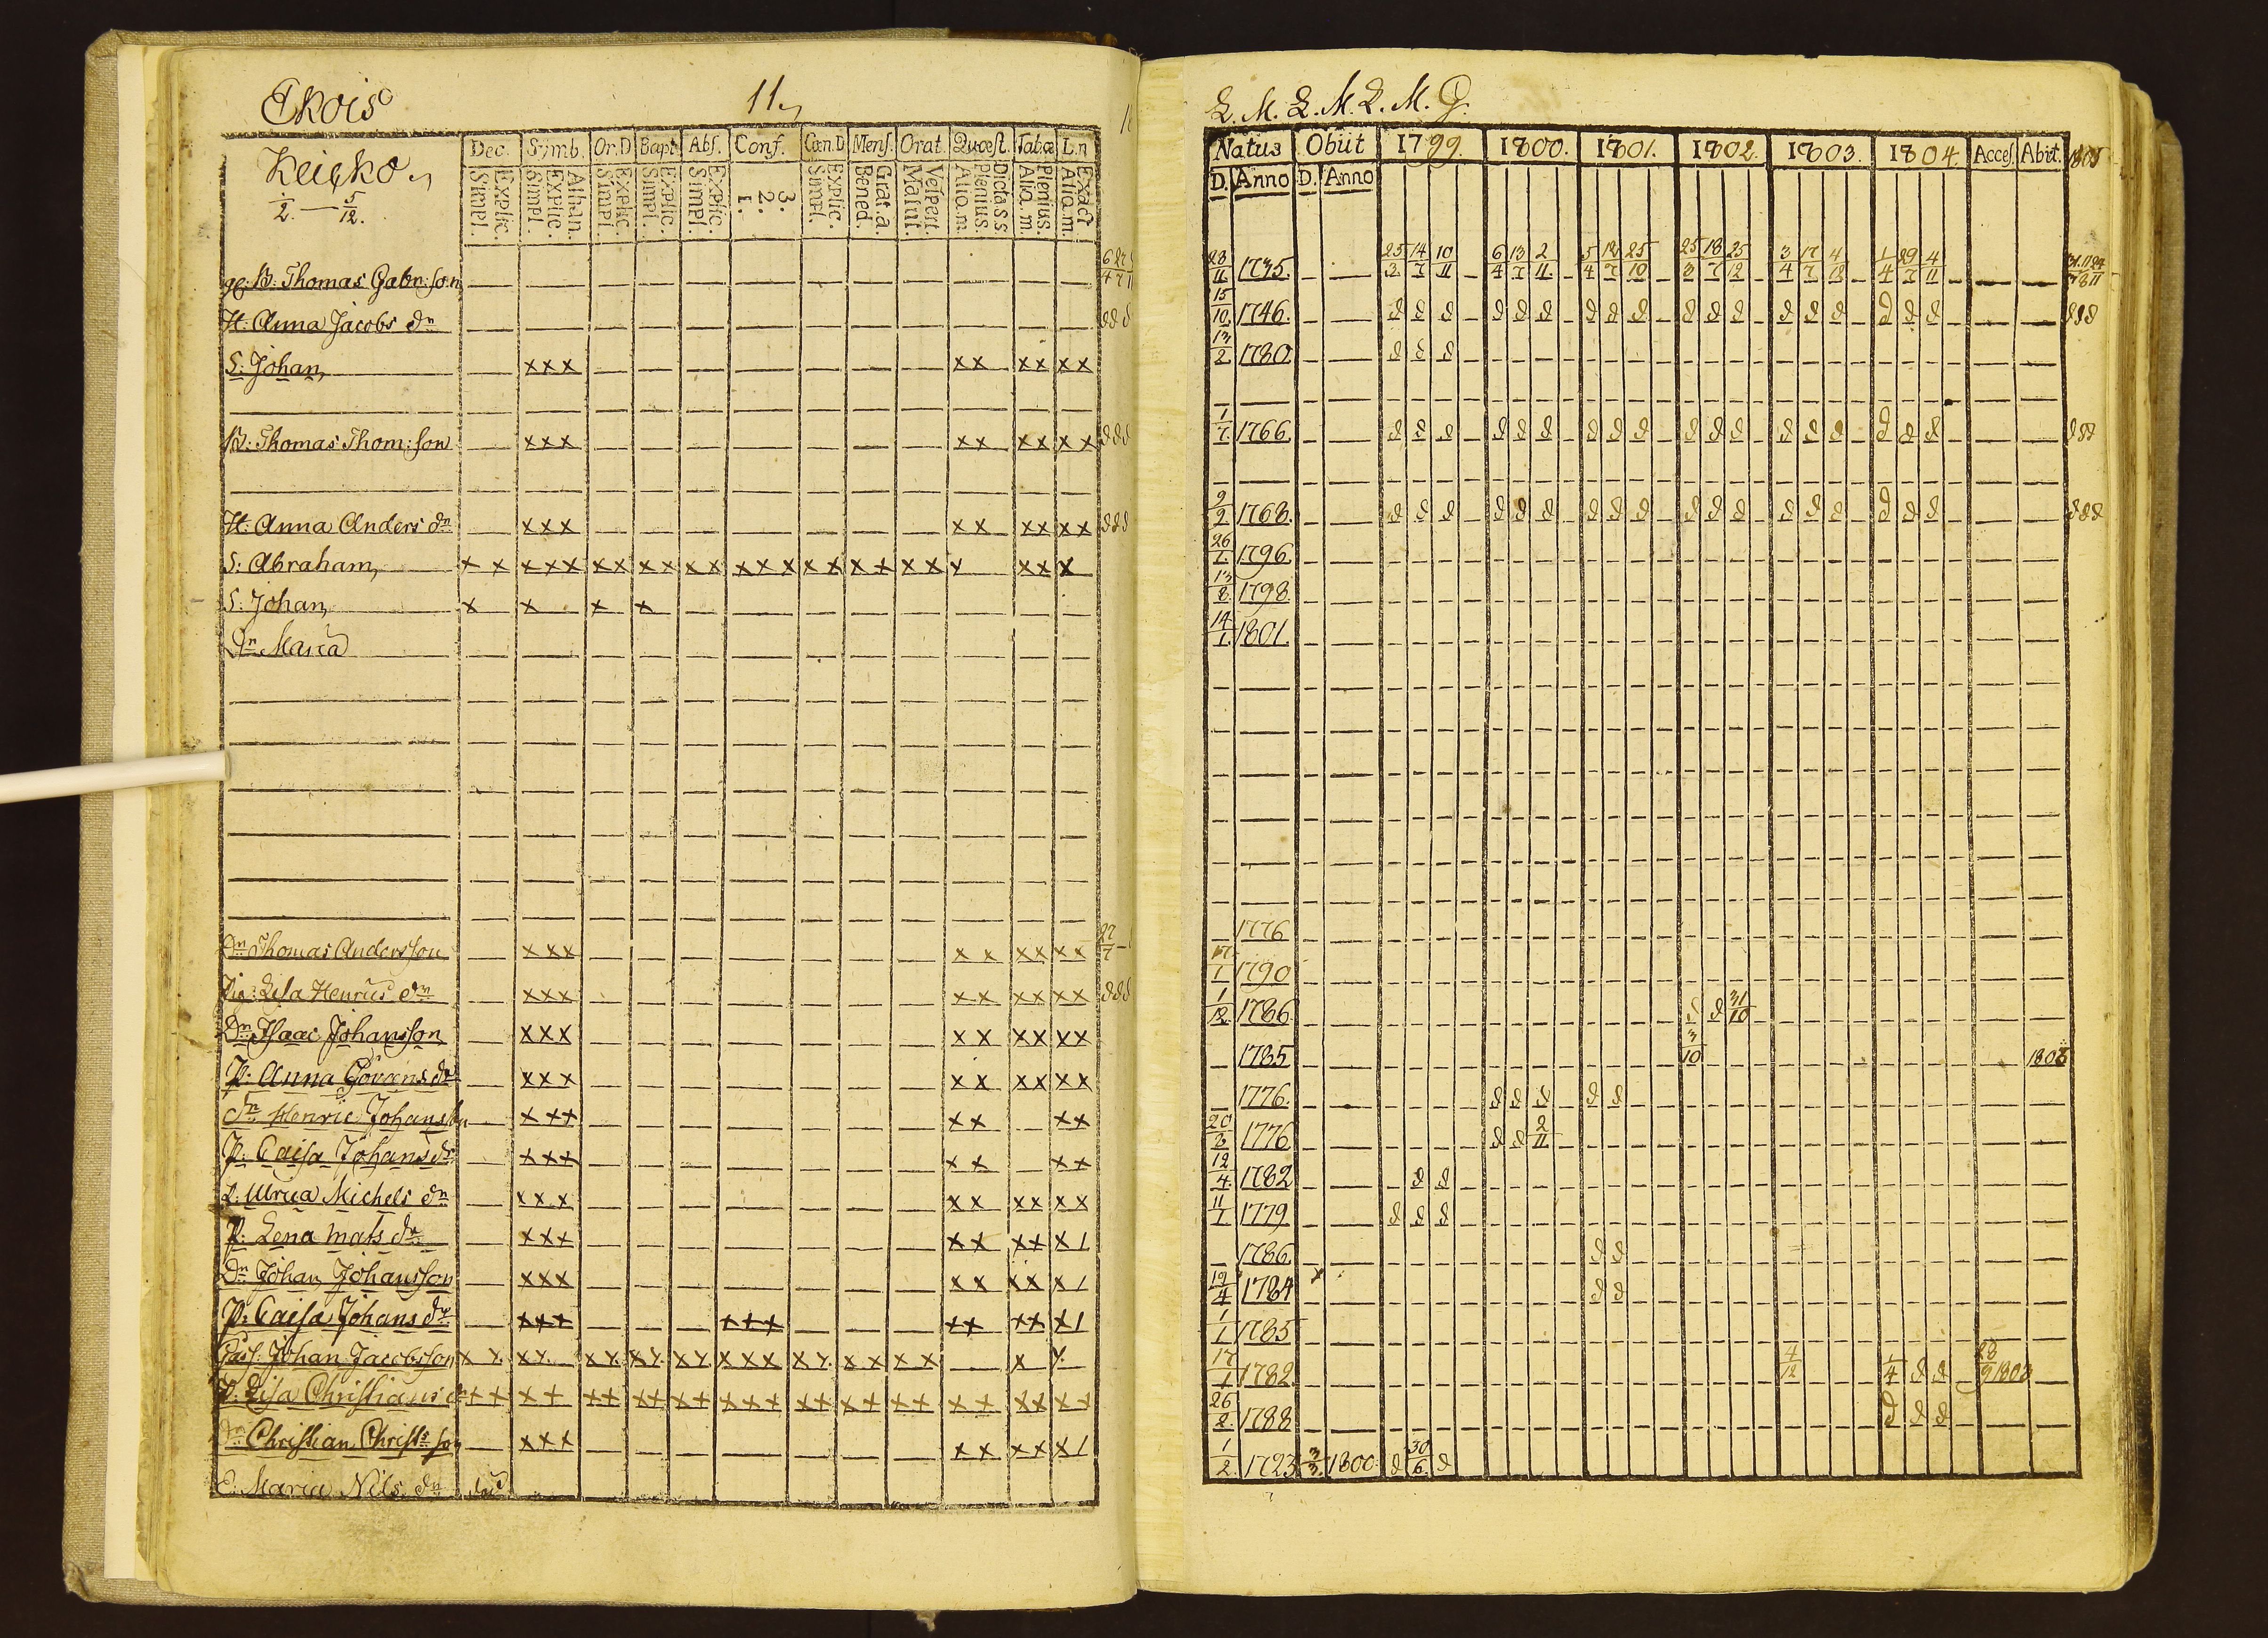 Ekois
11
Keicko
1/2 — 5/12.
Dec. Symb. Or.D Bapt. Abs. Conf. Cœn.D Mens. Orat. Quæst. Tabæ L.n
Explic. Simpl. Athan. Explic. Simpl. Explic. Simpl. Explic. Simpl. Explic. Simpl. 3. 2. 1. Explic. Simpl. Grat.a. Bened. Vespert. Matut. Dicta s.s. Plenius. Aliq.m. Plenius. Aliq.m. Exact Aliq.m.
B. Thomas Gabr:son
H: Anna Jacobs dr
S: Johan xxx xx xx xx
B: Thomas Thom:son xxx xx xx xx
H: Anna Anders dr xxx xx xx xx
S: Abraham xx xxx xx xx xx xxx xx xx xx x xx x
S: Johan x x x x
Dr Maria
Dr Thomas Andersson xxx xx xx xx
Pig: Lisa Henrics dr xxx xx xx xx
Dr Isaac Johansson xxx xx xx xx
P: Anna Görans dr xxx xx xx xx
Dr Henric Johansson xxx xx xx
P. Caisa Johans dr xxx xx xx
Ulrica Michels dr xxx xx xx xx
P: Lena Mats dr xxx xx xx x1
Dr Johan Johansson xxx xx xx x1
P: Caisa Johans dr xxx xxx xx xx x1
Johan Jacobsson xx xx xx xx xx xxx xx xx xx x x
P. Lisa Christians dr xx xx xx xx xx xxx xx xx xx xx xx xx
Dr Christian Christ:son xxx xx xx x1
E. Maria Nils dr
L. M. L. M. L. M. G.
Natus Obiit 1799. 1800. 1801. 1802. 1803. 1804. Acces. Abit. 1805
D. Anno D. Anno
28/11 1735. 25/3 14/7 10/11 6/4 13/7 2/11 5/4 12/7 25/10 25/3 18/7 25/12 3/4 17/7 4/12 1/4 29/7 4/11
15/10 1746.
13/2 1780.
1/7 1766.
9/2 1768.
26/1 1796.
13/8 1798.
14/1 1801.
1776
17/1 1790
1/12 1786. 31/10
1785 3/10
1776.
20/3 1776 2/11
12/4 1782
11/7 1779
1786
19/4 1784
1/1 1785
17/1 1782 4/12 1/4
26/2 1788
1/2 1723 1800 30/6